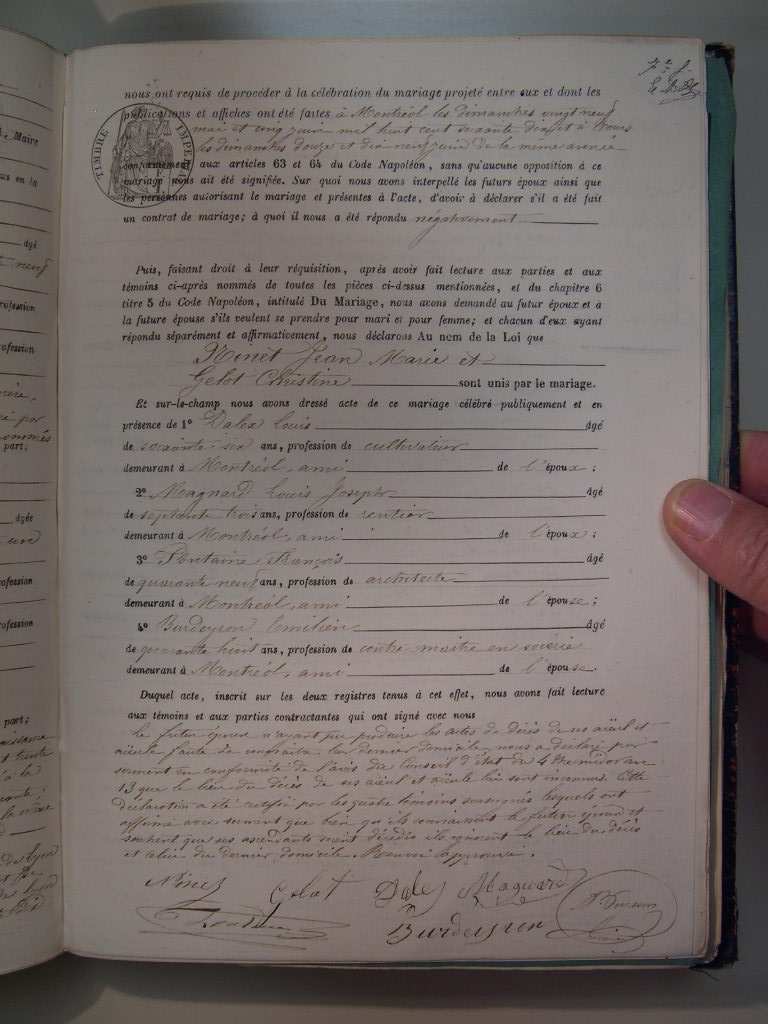 7e f.
nous ont requis de procéder à la célébration du mariage projeté entre eux et dont les
publications et affiches ont été faites à Montréal les dimanches vingt neuf
mai et cinq juin mil huit cent soixante dix et à
les dimanches douze et dix neuf juin de la même année
conformément aux articles 63 et 64 du Code Napoléon, sans qu'aucune opposition à ce
mariage nous ait été signifiée. Sur quoi nous avons interpellé les futurs époux ainsi que
les personnes autorisant le mariage et présentes à l'acte, d'avoir à déclarer s'il a été fait
un contrat de mariage; à quoi il nous a été répondu négativement
TIMBRE IMPÉRIAL
Puis, faisant droit à leur réquisition, après avoir fait lecture aux parties et aux
témoins ci-après nommés de toutes les pièces ci-dessus mentionnées, et du chapitre 6
titre 5 du Code Napoléon, intitulé Du Mariage, nous avons demandé au futur époux et à
la future épouse s'ils veulent se prendre pour mari et pour femme; et chacun d'eux ayant
répondu séparément et affirmativement, nous déclarons Au nom de la Loi que
Ninet Jean Marie et
Gelot Christine sont unis par le mariage.
Et sur-le-champ nous avons dressé acte de ce mariage célébré publiquement et en
présence de 1° Dalex Louis âgé
de soixante-six ans, profession de cultivateur
demeurant à Montréal, ami de l'époux;
2° Magnard Louis Joseph âgé
de septante trois ans, profession de rentier
demeurant à Montréal, ami de l'époux;
3° Fontaine François âgé
de quarante neuf ans, profession de architecte
demeurant à Montréal, ami de l'épouse;
4° Burdeyron Emilien âgé
de quarante huit ans, profession de contre-maître en soierie
demeurant à Montréal, ami de l'épouse.
Duquel acte, inscrit sur les deux registres tenus à cet effet, nous avons fait lecture
aux témoins et aux parties contractantes qui ont signé avec nous
le futur époux n'ayant pu produire les actes de décès de ses aïeul et
aïeule faute de connaître leur dernier domicile, nous a déclaré par
serment en conformité de l'avis du Conseil d'état du 4 thermidor an
13 que le lieu du décès de ses aïeul et aïeule lui sont inconnus. Cette
déclaration a été certifiée par les quatre témoins soussignés lesquels ont
affirmé avec serment que bien qu'ils connaissent le futur époux et
sachent que ses ascendants soient décédés ils ignorent le lieu du décès
et celui du dernier domicile. approuvé.
Ninet Gelot Dalex Magnard
Fontaine Burdeyron